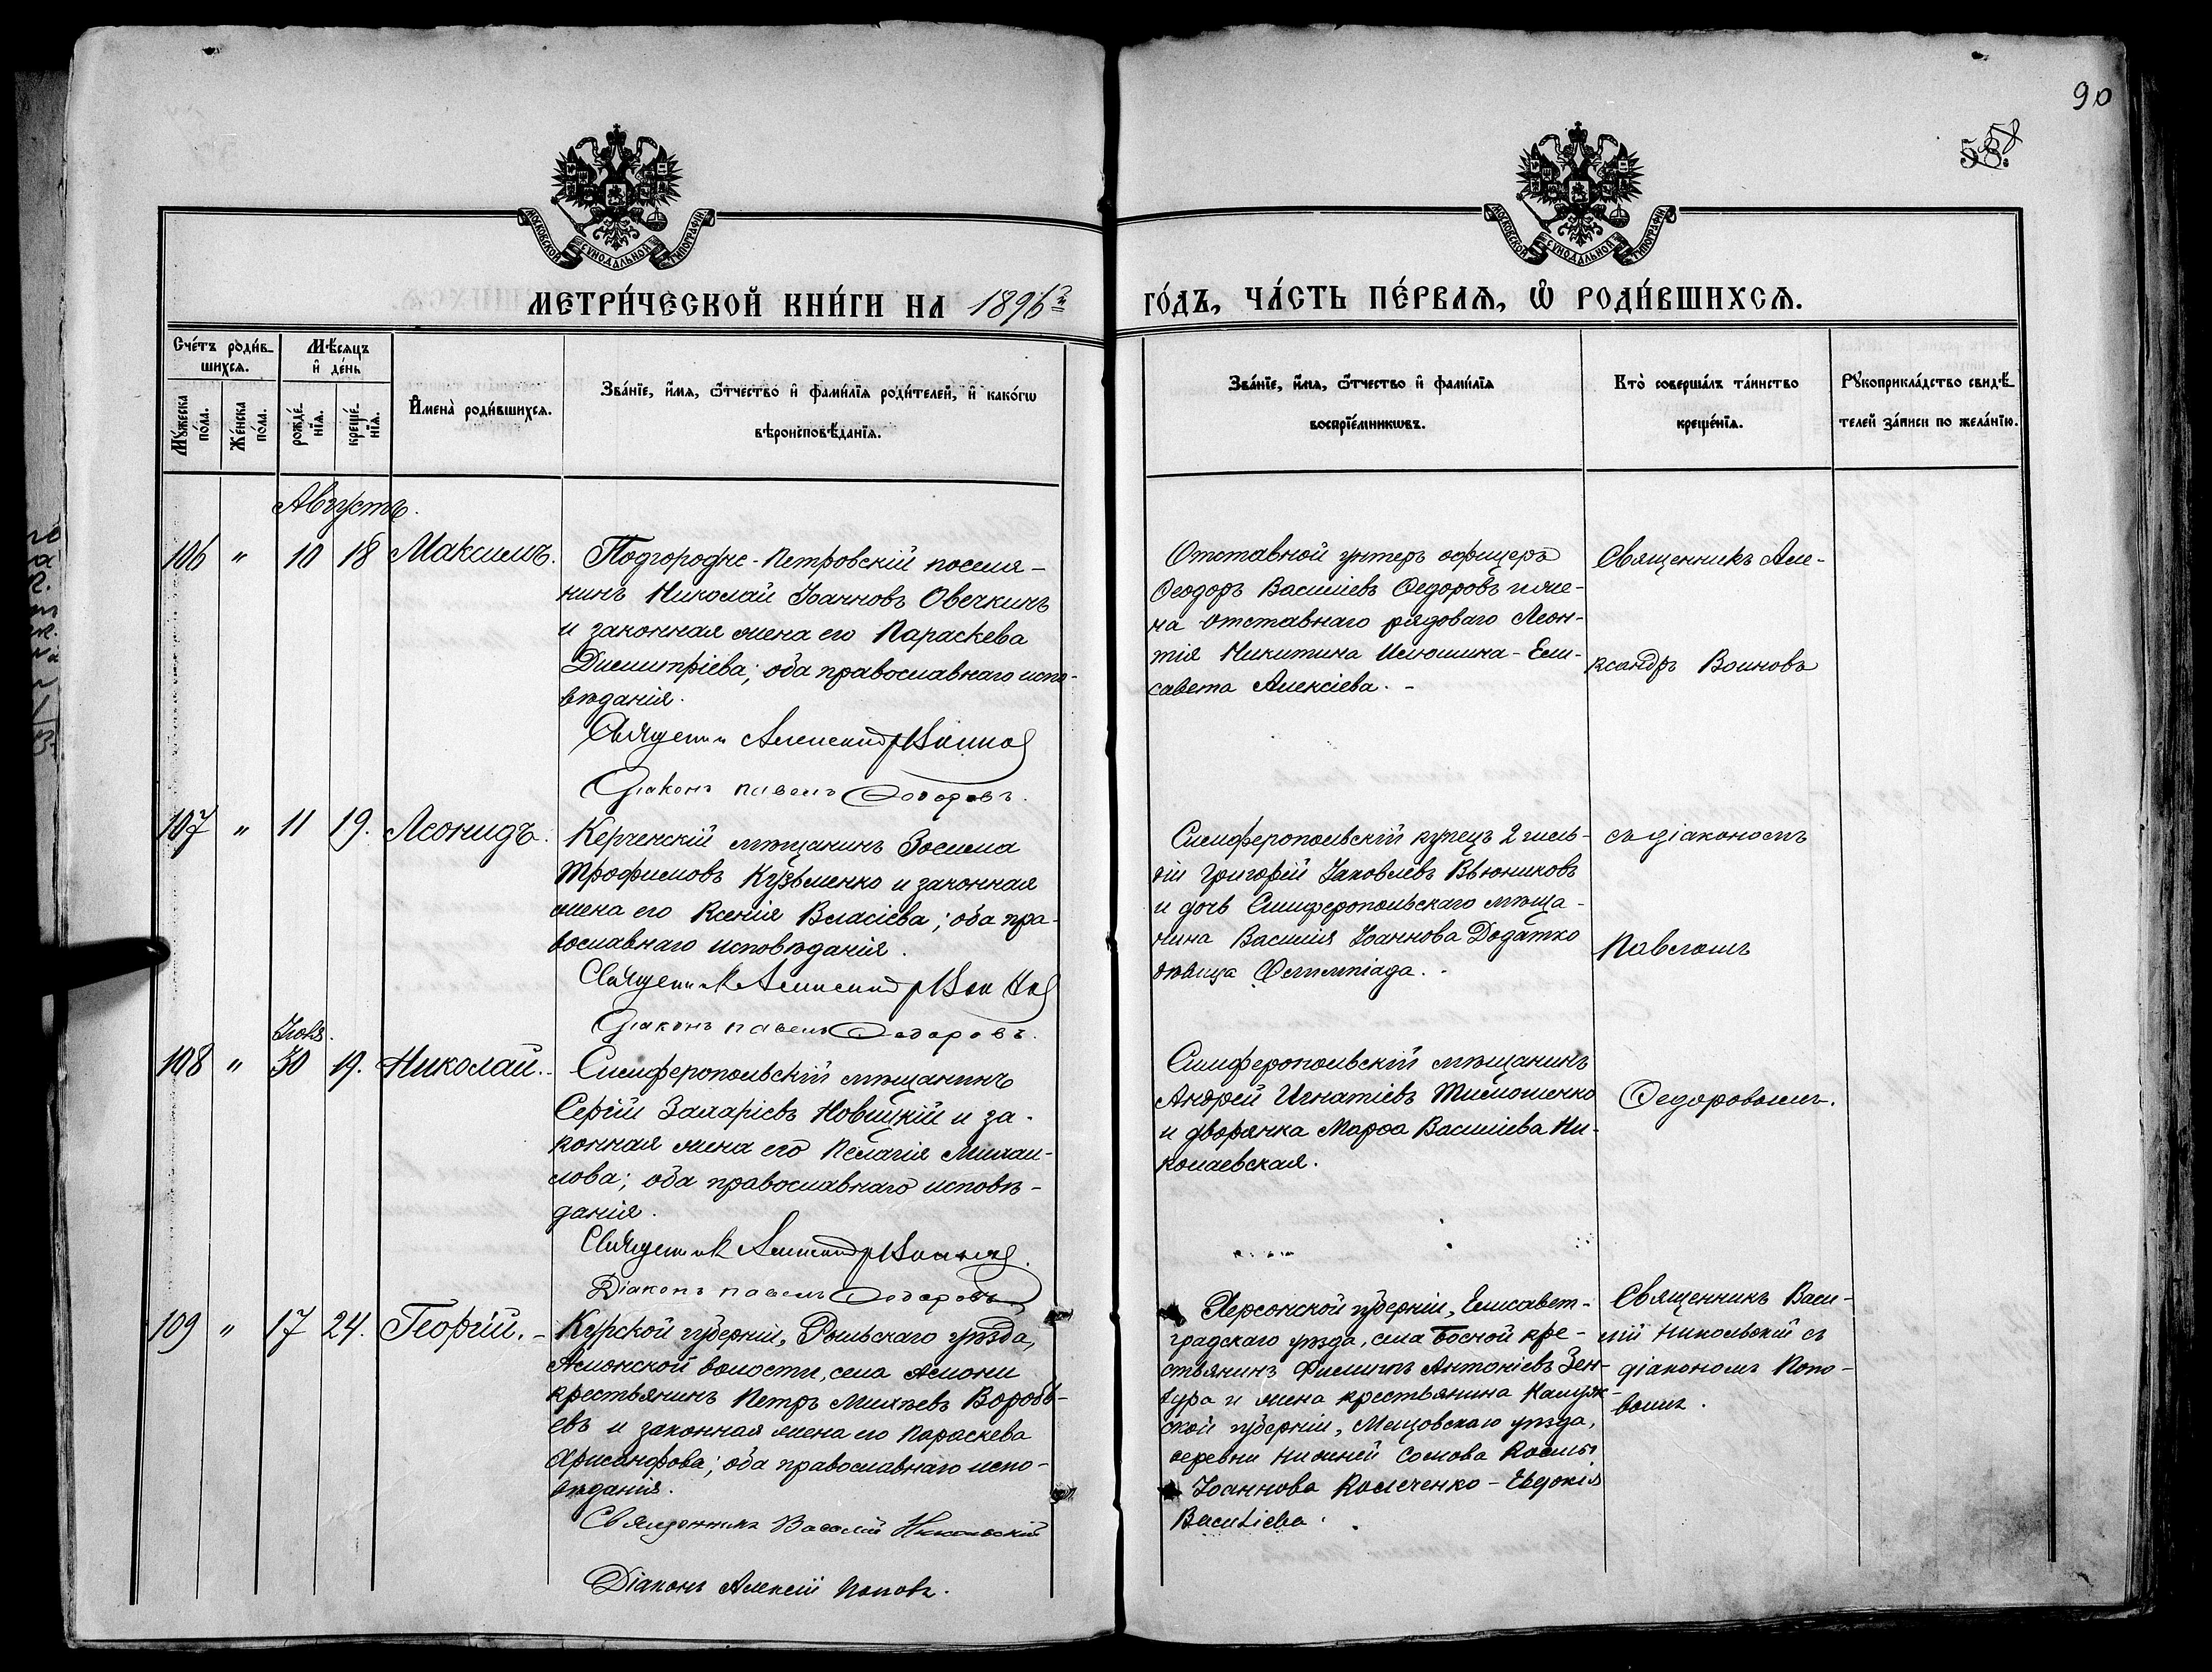 90
58.
МОСКОВСКОЙ СѴНОДАЛЬНОЙ ТИПОГРАФІИ
МОСКОВСКОЙ СѴНОДАЛЬНОЙ ТИПОГРАФІИ
МЕТРИ́ЧЕСКОЙ КНИ́ГИ НА 1896й
ГО́ДЪ, ЧА́СТЬ ПЕ́РВАѦ, Ѽ РОДИ́ВШИХСѦ.
Сче́тъ роди́в-
шихсѧ.
Мꙋ́жеска по́ла.
Же́нска по́ла.
Мѣ́сѧцъ
и҆ де́нь
рожде́-
нїѧ.
креще́-
нїѧ.
И҆мена̀ роди́вшихсѧ.
Зва́нїе, и҆́мѧ, ѻ҆́тчество и҆ фами́лїѧ роди́телей, и҆ како́гѡ
вѣроисповѣ́данїѧ.
Зва́нїе, и҆́мѧ, ѻ҆́тчество и҆ фами́лїѧ
воспрїе́мникѡвъ.
Кто̀ соверша́лъ та́инство
креще́нїѧ.
Рꙋкоприкла́дство свидѣ́-
телей за́писи по жела́нїю.
Августъ.
106 " 10 18 Максимъ.
Подгородне-Петровскій поселя-
нинъ Николай Іоанновъ Овечкинъ
и законная жена его Параскева
Димитріева; оба православнаго испо-
вѣданія.
Священник Александръ Воинов
Діаконъ Павелъ Ѳедоровъ.
Отставной унтеръ офицеръ
Ѳеодоръ Василіевъ Ѳедоровъ и же-
на отставнаго рядоваго Леон-
тія Никитина Илюшина - Ели-
савета Алексіева. -
Священникъ Але-
ксандръ Воиновъ
107 " 11 19. Леонидъ.
Керченскій мѣщанинъ Зосима
Трофимовъ Кузьменко и законная
жена его Ксенія Власіева; оба пра-
вославнаго исповѣданія.
Священник Александръ Воинов
Діаконъ Павелъ Ѳедоровъ.
Симферопольскій купецъ 2 гиль-
діи Григорій Іаковлевъ Вьюниковъ
и дочь Симферопольскаго мѣща-
нина Василія Іоаннова Додатко
дѣвица Олимпіада. -
съ діакономъ
Павломъ
Іюля.
108 " 30 19. Николай.
Симферопольскій мѣщанинъ
Сергій Захаріевъ Новицкій и за-
конная жена его Пелагія Михаи-
лова; оба православнаго исповѣ-
данія.
Священник Александръ Воинов.
Діаконъ Павелъ Ѳедоровъ
Симферопольскій мѣщанинъ
Андрей Игнатіевъ Тимошенко
и дворянка Марѳа Василіева Ни-
колаевская.
Ѳедоровымъ.
109 " 17 24. Георгій. -
Курской губерніи, Рыльскаго уѣзда,
Асмонской волости, села Асмони
крестьянинъ Петръ Михѣевъ Воробь-
евъ и законная жена его Параскева
Хрисанфова; оба православнаго испо-
вѣданія.
Священникъ Василій Никольскій
Діаконъ Алексій Поповъ.
Херсонской губерніи, Елисавет-
градскаго уѣзда, села кре-
стьянинъ Филиппъ Антоніевъ Зен-
зура и жена крестьянина Калуж-
ской губерніи, Мещовскаго уѣзда,
деревни Нижней Сомова Космы
Іоаннова Комеченко - Евдокія
Василіева.
Священникъ Васи-
лій Никольскій съ
діакономъ Попо-
вымъ.